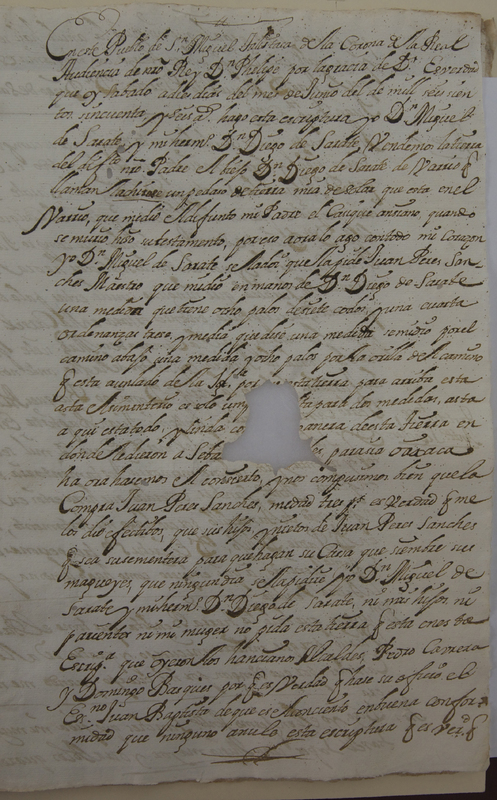 En este Pueblo de Sn. Miguel Tlalistaca de la Corona de la Real
Audiencia de nro Rey Dn. Phelipe por la gracia de Ds. Es verdad
que oy sabado a dies dias del mes de Junio del de mil seis sien
tos sincuenta, y seis as. hago esta escriptura yo Dn. Miguel
de Sarate, y mi hermo. Dn. Diego de Sarate, Vendemos la tierra
del difto. nro. Padre el biejo Dn. Diego de Sarate de Varrio q
llaman un pedaso de tierra mia de solar que esta en el
Varrio, que medio el difunto mi Padre el Casique ansiano quando
se murio hiso su testamento, por eso aora lo ago con todo mi Corazon
yo Dn. Miguel de Sarate, se la doy que la pide Juan Peres San
ches Maestro que medio en manos de Dn. Diego de Sarate
una medida que tiene ocho palos de siete codos, y una cuarta
ordenansas tase, y media que dise una medida se midio por el
camino abajo una medida y ocho palos por la orilla del camino
q esta a un lado de la para arriba esta
asta el simenterio es solo para dos medidas, asta
a qui esta todo, y linda manera de esta tierra en
donde le dieron a Seba para va oaxaca
ha ora hasemos el conserto, y nos compusimos bien que la
Compra Juan Peres Sanches, me da tres ps. es Verdad q me
los dio efectibos, que sus hijos y nietos de Juan Peres Sanches
q sea su sementera para que hagan su Casa que siembre sus
magueyes, que ninguno dia se la pidiese yo Dn. Miguel de
Sarate y mi hermo. Dn. Diego de Sarate, ni mis hijos ni
parientes ni mi muger no pida esta tierra q esta en este
Escrip.a que oyeron los hansianos Alcaldes, Pedro Carrera
y Domingo Basques por q es Verdad q hase su officio el
Esno. Juan Baptista de que es Monciento en buena confor
midad que ninguno anulo esta escriptura q es verd. q